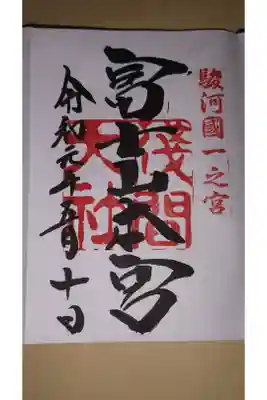 駿河國一之宮
富士山本宮
淺間大社
令和元年五月十日